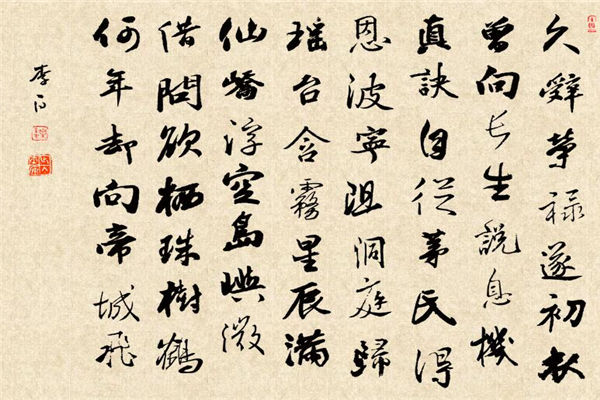 久辭榮禄遂初衣
曾向长生說息機
真訣自從茅氏得
恩波寧阻洞庭歸
瑶台含霧星辰滿
仙嶠浮空島嶼微
借問欲栖珠樹鶴
何年却向帝城飛
李